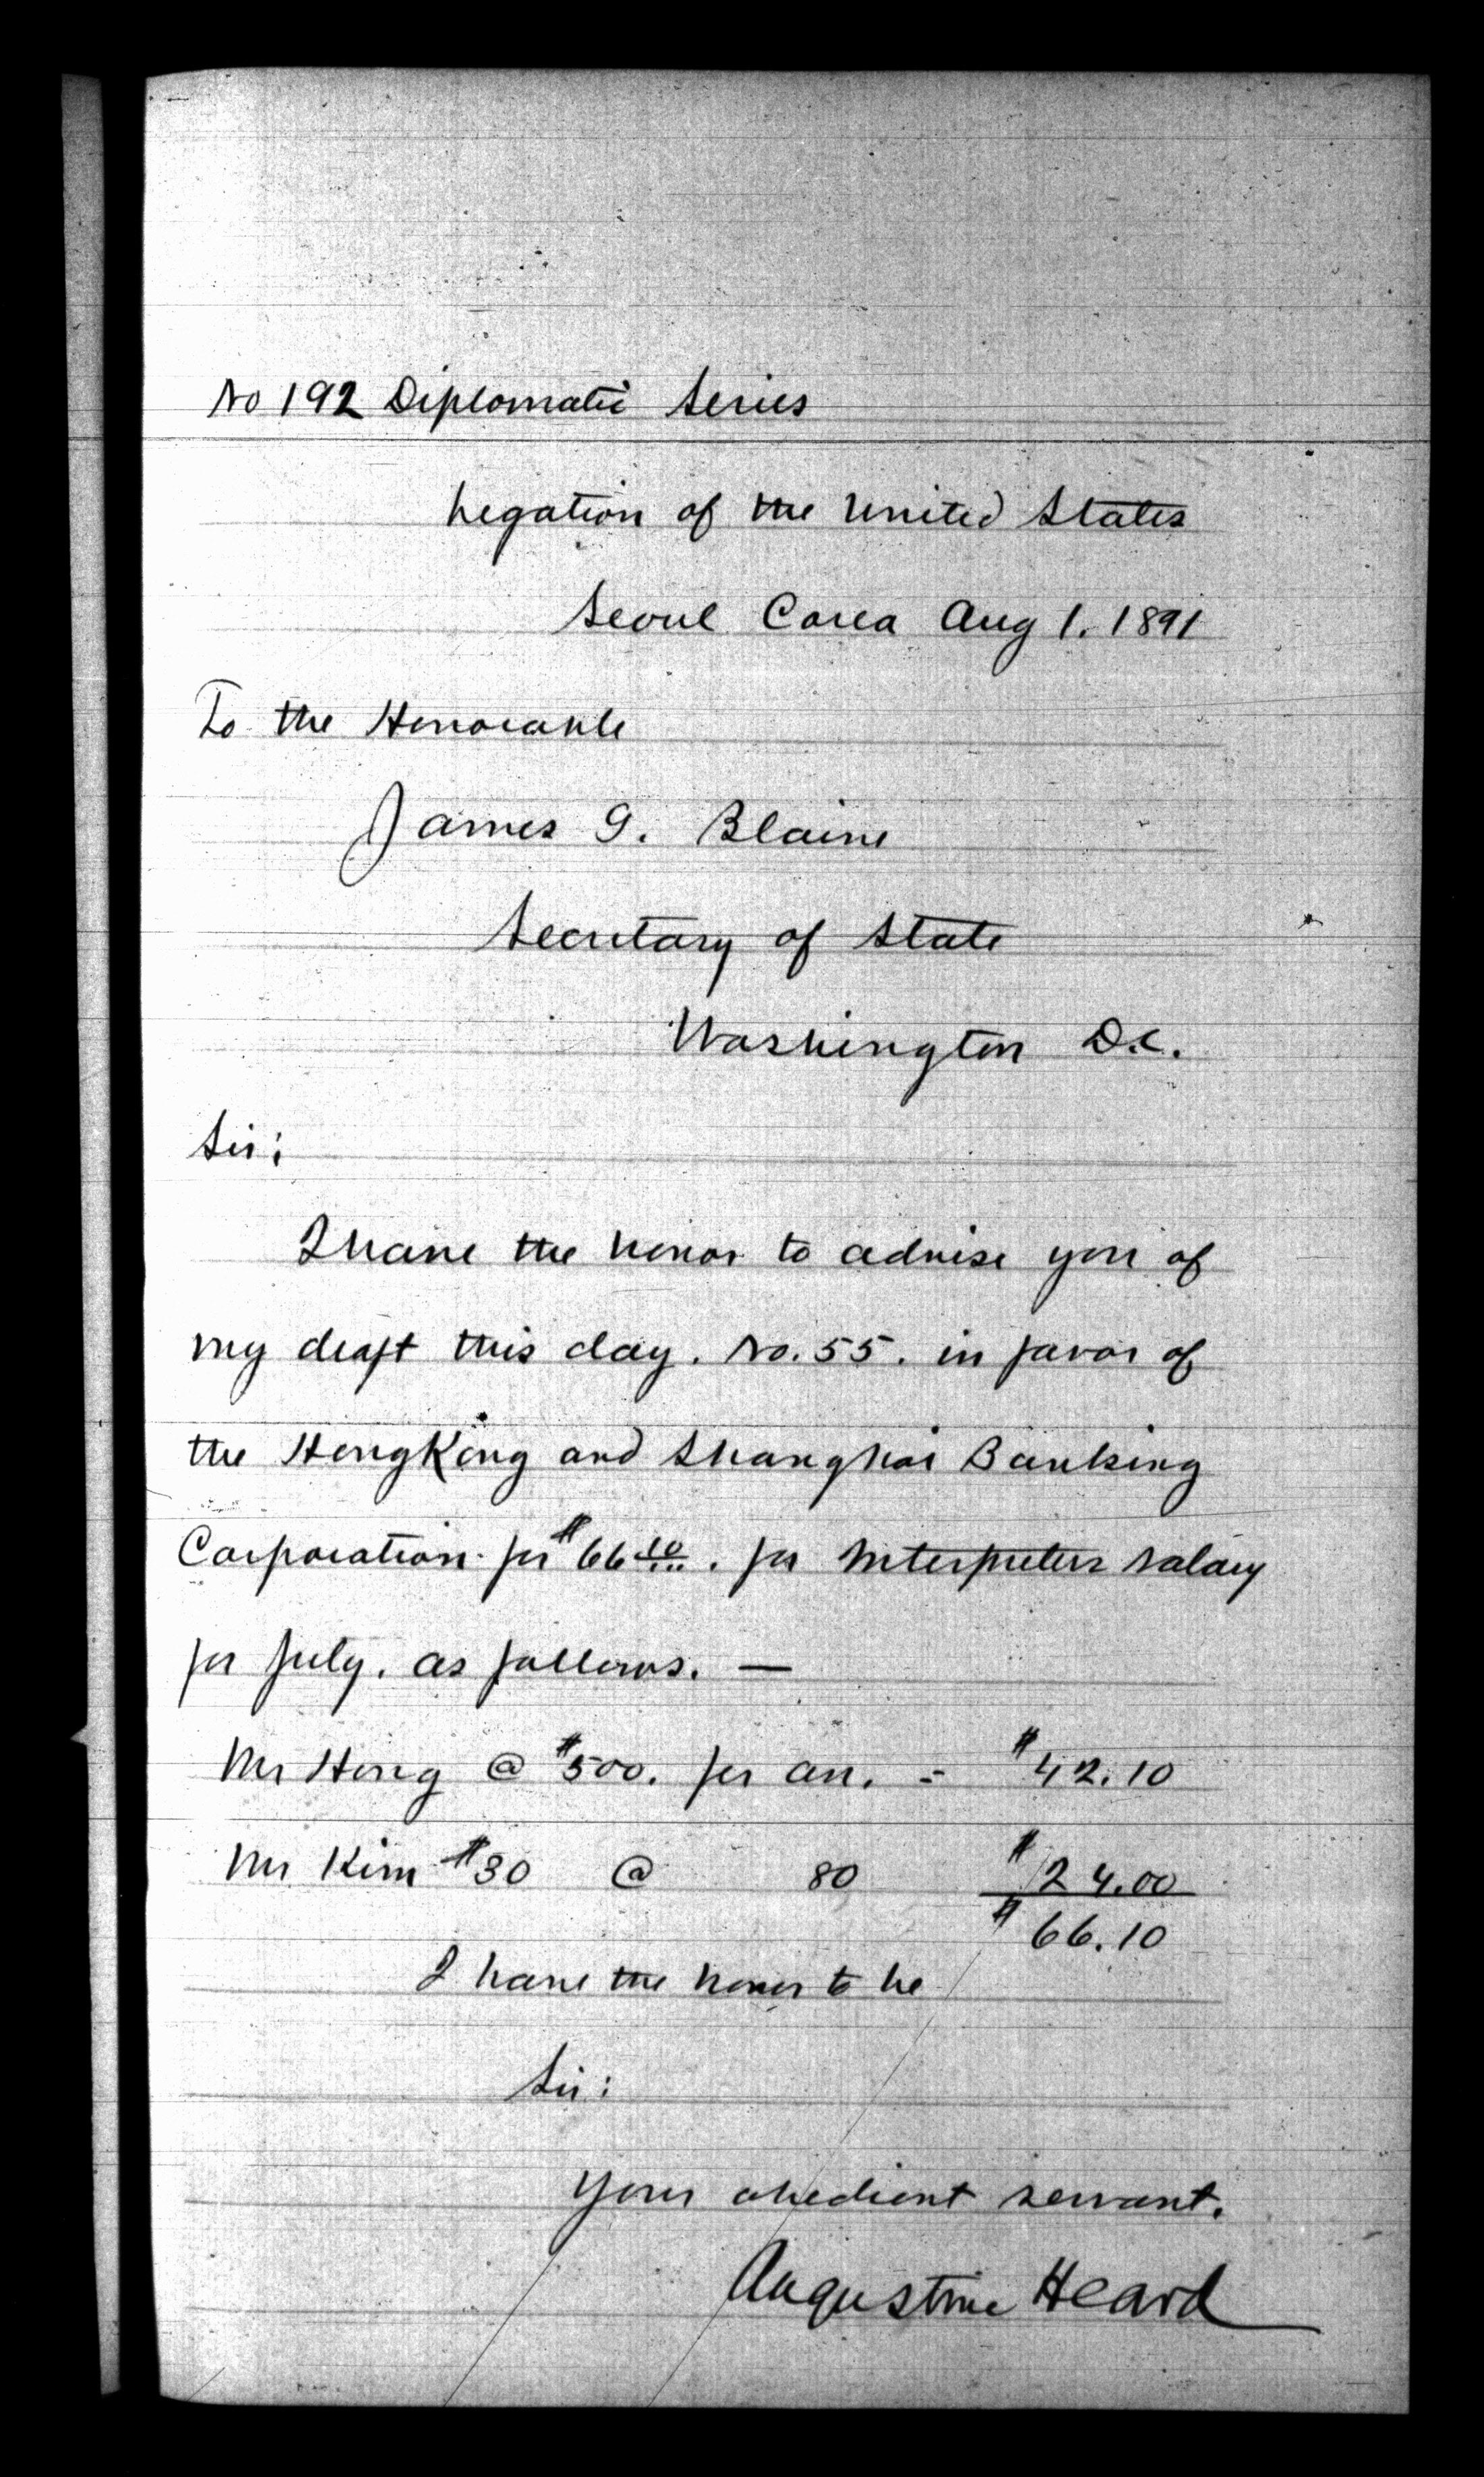 No 192 Diplomatic Series
Legation of the United States
Seoul Corea Aug 1. 1891
To the Honorable
James G. Blaine
Secretary of State
Washington D.C.
Sir:
I have the honor to advise you of
my draft this day. No. 55. in favor of
the HongKong and Shanghai Banking
Corporation for $66 10/100. for Interpreters salary
for July. as follows. —
Mr Hong @ $500. per an. = $42.10
Mr Kim $30 @ 80 $24.00
$66.10
I have the honor to be
Sir:
Your obedient servant.
Augustine Heard